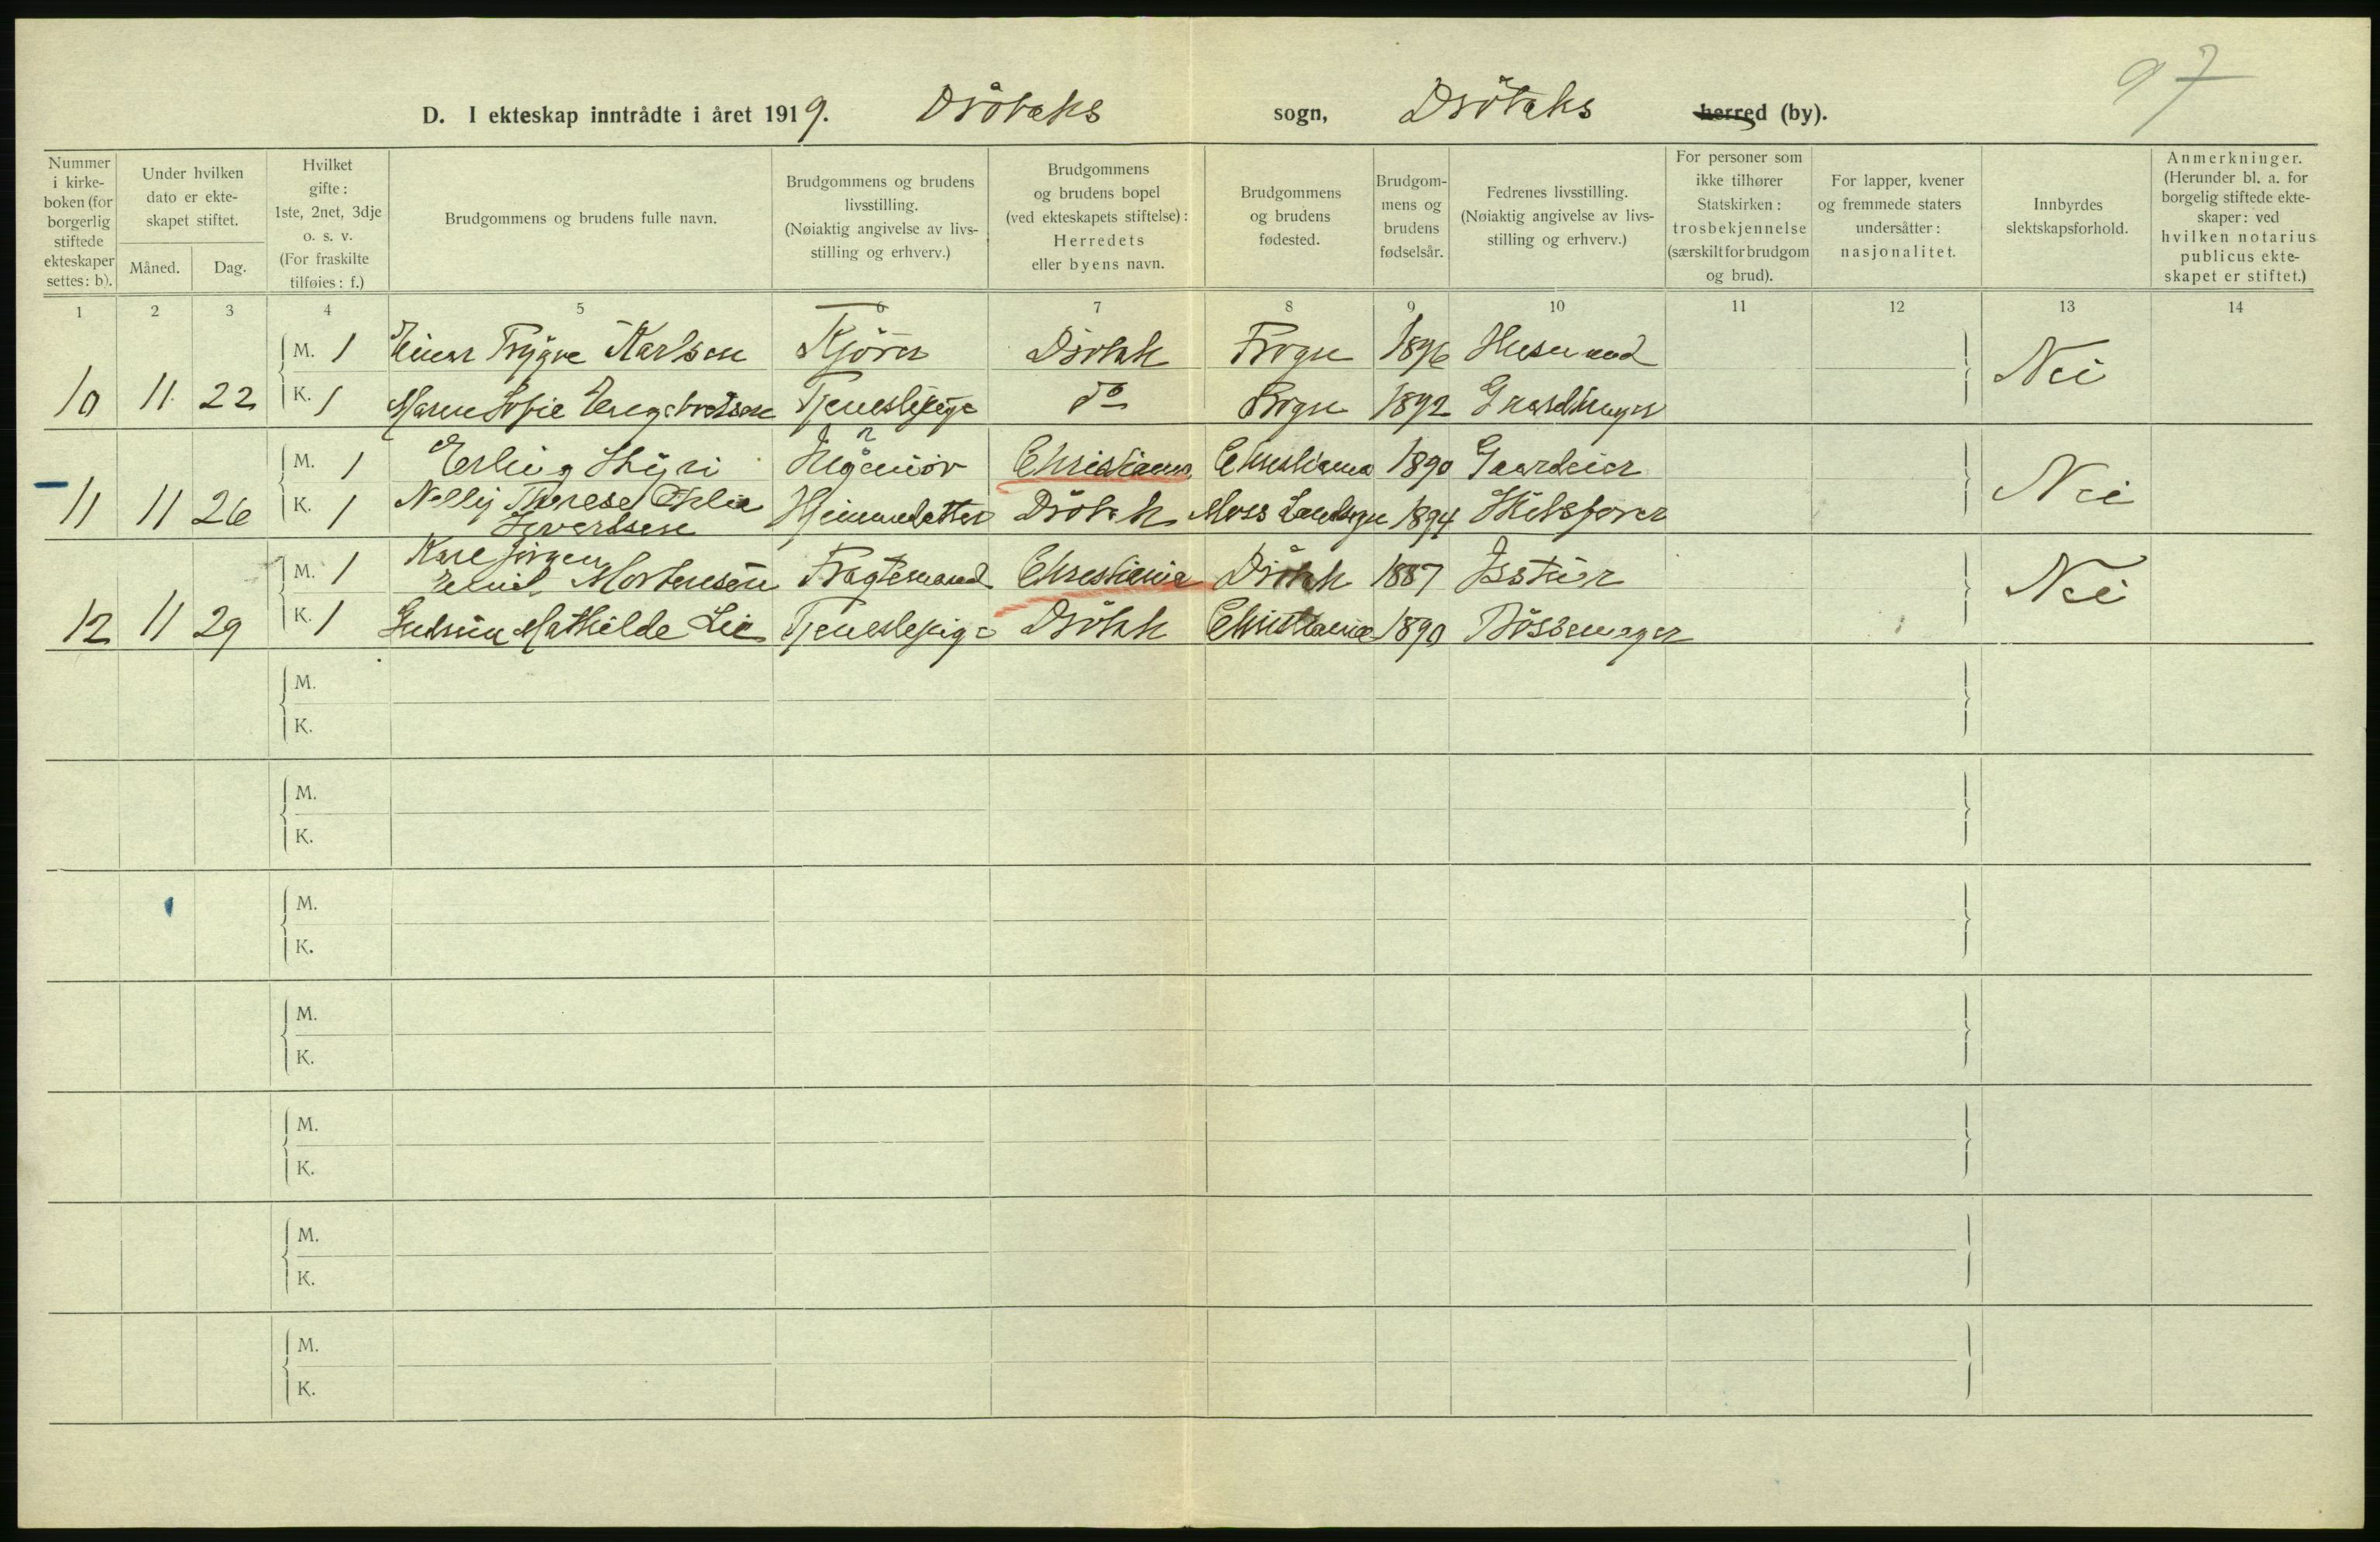 97
D. I ekteskap inntrådte i året 1919. Drøbaks sogn, Drøbaks herred (by).
Nummer i kirkeboken (for borgerlig stiftede ekteskaper settes: b).
Under hvilken dato er ekteskapet stiftet.
Måned. Dag.
Hvilket gifte: 1ste, 2net, 3dje o. s. v. (For fraskilte tilføies: f.)
Brudgommens og brudens fulle navn.
Brudgommens og brudens livsstilling. (Nøiaktig angivelse av livsstilling og erhverv.)
Brudgommens og brudens bopel (ved ekteskapets stiftelse): Herredets eller byens navn.
Brudgommens og brudens fødested.
Brudgommens og brudens fødselsår.
Fedrenes livsstilling. (Nøiaktig angivelse av livsstilling og erhverv.)
For personer som ikke tilhører Statskirken: trosbekjennelse (særskilt for brudgom og brud).
For lapper, kvener og fremmede staters undersåtter: nasjonalitet.
Innbyrdes slektskapsforhold.
Anmerkninger. (Herunder bl. a. for borgelig stiftede ekteskaper: ved hvilken notarius publicus ekteskapet er stiftet.)
1 2 3 4 5 6 7 8 9 10 11 12 13 14
M. 1 Einar Trygve Karlsen Kjörer Dröbak Frogn 1896 Husmand
10 11 22 K. 1 Maren Sofie Engebretsen Tjenestepige do Frogn 1892 Gaardbruger Nei
M. 1 Erling Styri Ingeniör Christiania Christiania 1890 Gaardeier
11 11 26 K. 1 Nelly Therese Othelie Syvertsen Hjemmedatter Dröbak Moss Landsogn 1894 Skibsfører Nei
M. 1 Karl Jörgen Emil Mortensen Fragtemand Christiania Dröbak 1887
12 11 29 K. 1 Gudrun Mathilde Lie Tjenestepige Dröbak Christiania 1890 Bössemager Nei
M.
K.
M.
K.
M.
K.
M.
K.
M.
K.
M.
K.
M.
K.